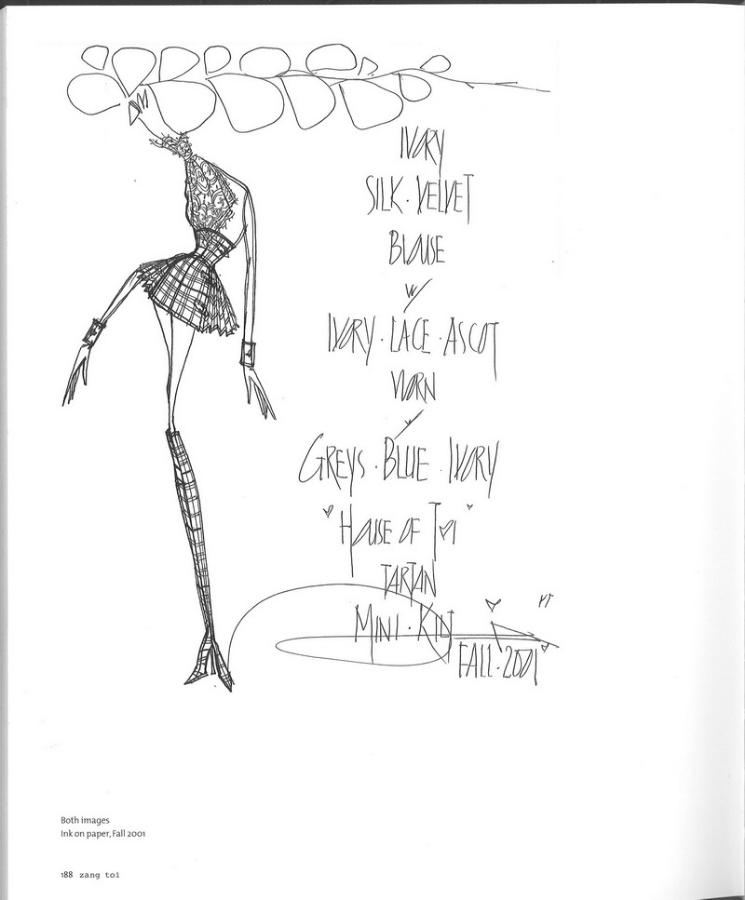 IVORY
SILK · VELVET
BLOUSE
w/
IVORY · LACE · ASCOT
WORN
w/
GREYS · BLUE · IVORY
"HOUSE OF TOI"
TARTAN
MINI · KILT
FALL · 2001
Both images
Ink on paper, Fall 2001
188 zang toi